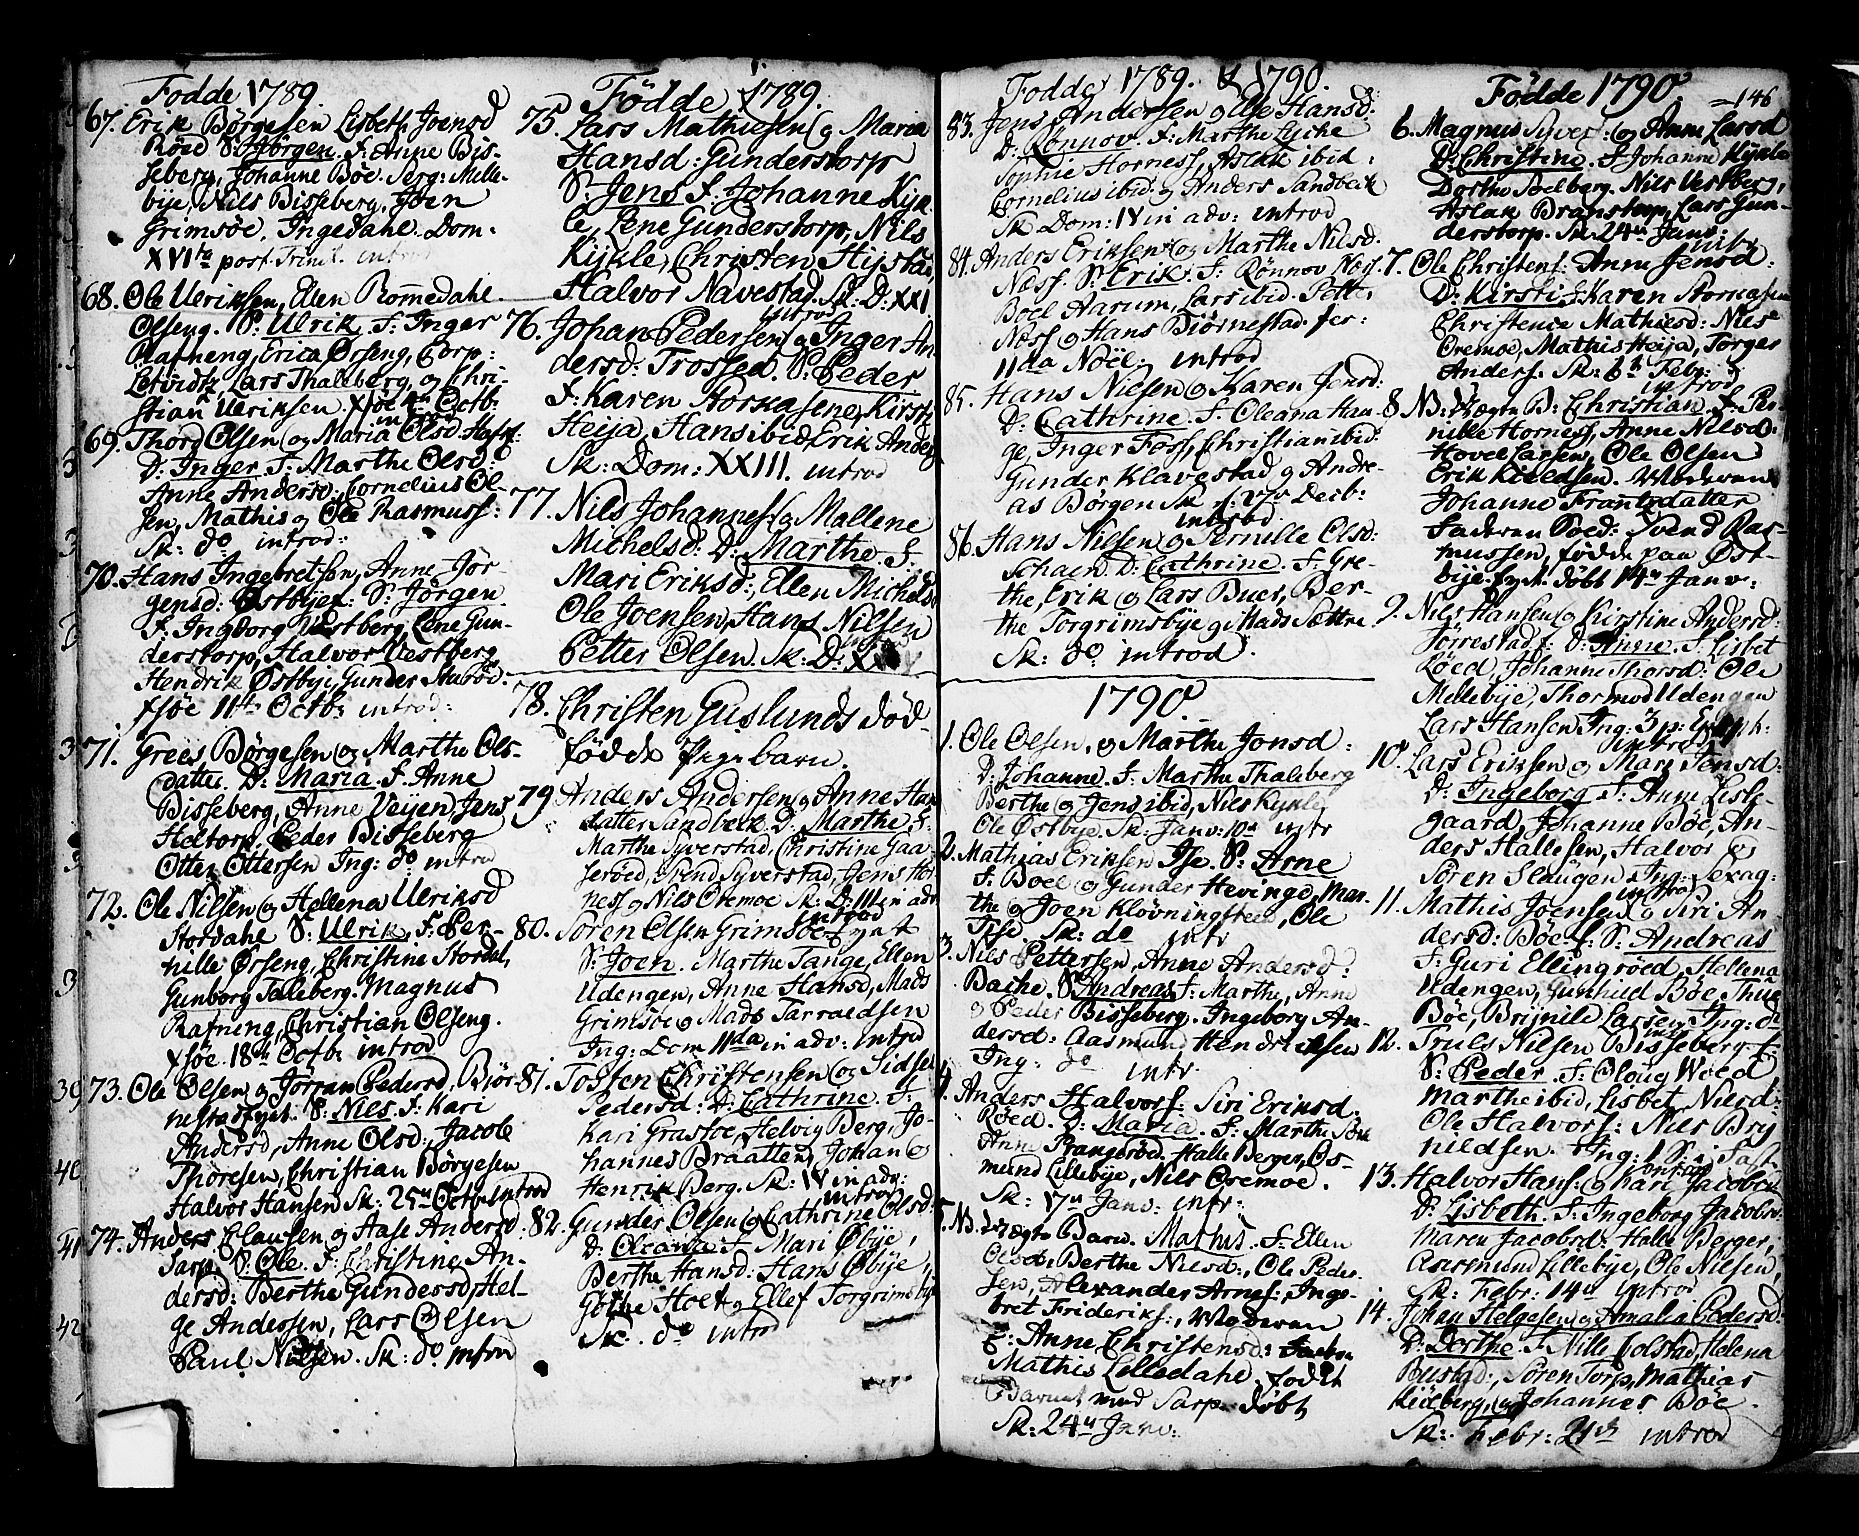 Fodde 1789.
67. Erik Börgesen Lisbeth Joensd
Röed S: Jörgen. F: Anne Bis-
seberg, Johanne Böe. Serg: Mille-
bye, Nils Bisseberg, Joen
Grimsöe. Ingedahl. Dom.
XVIta post Trinit. introd
68. Ole Ulriksen, Ellen Romedahl.
Olseng. S: Ulrik. F: Inger
Rafneng, Erica Örseng, Corp:
Lars Thaleberg, og Chri-
stian Ulriksen. Xsöe Octb:
69. Thord Olsen og Maria Olsd
D: Inger F: Marthe Olsd:
Anne Andersd, Cornelius Ol-
sen, Mathis og Ole Rasmuss:
Sk: do introd:
70. Hans Ingebretsen, Anne Jör-
gensd: Östbyef: S: Jörgen.
F: Ingborg Vestberg, Lene Gun-
derstorp, Halvor Vestberg
Hendrik Östbye, Gunder
Xsöe 11te Octb: introd:
71. Grees Börgesen og Marthe Ols-
datter. D: Maria F: Anne
Bisseberg, Anne Veijen, Jens
Heltorp, Peder Bisseberg
Otter Ottersen Ing: do introd
72. Ole Nilsen og Hellena Ulriksd
Stordahl S: Ulrik, F: Per-
nille Örseng, Christine Stordal,
Gunborg Taleberg. Magnus
Rafning, Christian Olseng.
Xsöe. 18de Octb: introd
73. Ole Olsen og Jörran Pedersd, Biör-
S: Nils F: Kari
Andersd, Anne Olsd:, Jacob
Thoresen, Christian Börgesen
Halvor Hansen Sk: 25de Octb: introd
74. Anders Clausen og Aase Andersd.
Sarp. S: Ole. F: Christine An-
dersd: Berthe Gundersd, Hel-
ge Andersen, Lars Olsen
Paul Nilsen. Sk: do introd
Födde 1789.
75. Lars Mathiesen og Maria
Hansd: Gunderstorp
S: Jens F: Johanne Kyk-
le, Lene Gunderstorp, Nils
Kykle, Christen Hystad,
Halvor Navestad. Sk. D: XXI
introd
76. Johan Pedersen og Inger An-
dersd: Trossed. S: Peder
F: Karen Korkasene, Kirsti
Heija, Hans ibid, Erik Anders
Sk: Dom: XXIII. introd
77. Nils Johannes: og Mallene
Michelsd: D: Marthe F:
Mari Eriksd:, Ellen Michelsd
Ole Joensen, Hans Nilsen
Petter Olsen. Sk: D:
78. Christen Guslunds död-
födde Pige barn.
79. Anders Andersen og Anne Han
datter Sandbek D: Marthe F:
Marthe Syverstad, Christine Gaa-
seröed, Svend Syverstad, Jens Hor-
ness og Nils Oremoe Sk: D: III in adv
introd
80. Sören Olsen Grimsöe-
S: Joen. Marthe Tange, Ellen
Udengen, Anne Hansd, Mads
Grimsöe og Mads Tarraldsen
Ing: Dom IIda in adv: introd
81. Tosten Christensen og Sidsel
Pedersd: D: Cathrine. F:
Kari Grassoe, Helvig Berg, Jo-
hannes Braatten, Johan
Henrik Berg. Sk: IV in adv:
introd
82. Gunder Olsen og Cathrine Olsd:
D: F: Mari Öbye,
Berthe Hansd: Hans Öbye,
Göthe Holt og Ellef Torgrimsbye
Sk. do introd
Fodde 1789. & 1790.
83. Jens Andersen og Else Hansd:
D: Rönnov. F: Marthe Lyche
Sophie Horness, Aslak ibid:
Cornelius ibid: og Anders Sandbek
Sk. Dom: IV in adv: introd
84. Anders Eriksen og Marthe Nilsd.
Næss. S: Erik. F: Rönnov Næss.
Boel Aarum, Lars ibid. Pett:
Næss og Hans Biörnestad. fer:
IIda Nöel. introd
85. Hans Nielsen og Karen Jensd:
D: Cathrine. F: Oleana Hau-
ge, Inger Foss, Christian ibid:
Gunder Klavestad og Andre-
as Börgen Sk: 27de Decb:
introd
86. Hans Nielsen og Pernille Olsd:
D: Cathrine. F: Gre-
the, Erik og Lars Buer, Ber-
the Torgrimsbye og Mads Sættre
Sk: do introd.
1790
1. Ole Olsen, og Marthe Jonsd:
D: Johanne. F: Marthe Thaleberg
Berthe og Jens ibid, Nils Kykle,
Ole Östbye. Sk: Janv: 10de intr
2. Mathias Eriksen Ise. S: Arne
F: Boel og Gunder Hevinge, Mar-
the og Joen Klövningsteen, Ole
Sk: do intr
3. Nils Pettersen, Anne Andersd:
Bache. S: Andreas F: Marthe, Anne
og Peder Bisseberg. Ingeborg An-
dersd: Aasmund Hendriksen
Ing: do intr
4. Anders Halvors: Siri Eriksd.
Röed. D: Maria. F: Marthe
Anne Prangeröd. Halle Berger, Os-
mund Lillebye, Nils Oremoe.
Sk: 17de Janv: intr:
5. NB. Uægte Barn. Mathis. F: Ellen
Olsd: Berthe Nilsd:, Ole Peder-
sen, Alexander Arnes:, Inge-
bret Frideriks:, Moderen
Anne Christensd:
Mathis Lilledahl, födt
Barnet med Sarp. döbt
Sk: 24de Janv:
Födde 1790
146
6. Magnus Syvers: og Anne Larsd
D: Christine. F: Johanne Kykle
Dorthe Soelberg. Nils Vestberg,
Aslak Branstorp, Lars Gun-
derstorp. Sk. 24de Janv:
intr
7. Ole Christens: Anne Jensd:
D: Kirsti F: Karen Korkasene
Christence Mathisd: Nils
Oremoe, Mathis Heija, Torger
Anders: Sk: Febr:
introd
8. NB: Uægte B: Christian F: Per-
nille Horness, Anne Nilsd:
Hovel Larsen, Ole Olsen
Erik Kieldsen. Moderen
Johanne Frantzdatter
Faderen Soed: Svend Ras-
mussen, födde paa Öst-
bye. döbt 14de Janv:
9. Nils Hansen og Kirstine Andersd:
Torrestad D: Anne. F: Lisbet
Röed, Johanne Thorsd: Ole
Mellebye, Thormod Udengen
Lars Hansen Ing: 3 p: Epiph:
introd
10. Lars Eriksen og Mari Jensd:
D: Ingeborg F: Anne Lisle-
gaard, Johanne Böe, An-
ders Hallesen, Halvor og
Sören Slaugen Ing: Sexag:
introd
11. Mathis Joensen og Siri An-
dersd: Böe f: S: Andreas
F: Guri Ellingröed, Hellena
Udengen, Gunhild Böe, Thue
Böe, Brynild Larsen, Ing: do
12. Truls Nilsen Bisseberg f:
S: Peder F: Oloug Woed
Marthe ibid, Lisbet, Nilsd:
Ole Halvors: Nils Bry
nildsen. Ing: 1 S: i Fast.
introd
13. Halvor Hans: og Kari Jacobsd
D: Lisbeth. F: Ingeborg Jacobsd
Maren Jacobsd: Halle Berger,
Aasmund Lillebye, Ole Nilsen,
Sk: Febr: 14de introd
14. Johan Helgesen og Amalia Pedersd:
D: Dorthe F: Nille Colstad, Helena
Bustad:, Sören Torp, Mathias
Kiölberg, og Johannes Böe.
Sk: Febr: 21de introd
39
40
41
42